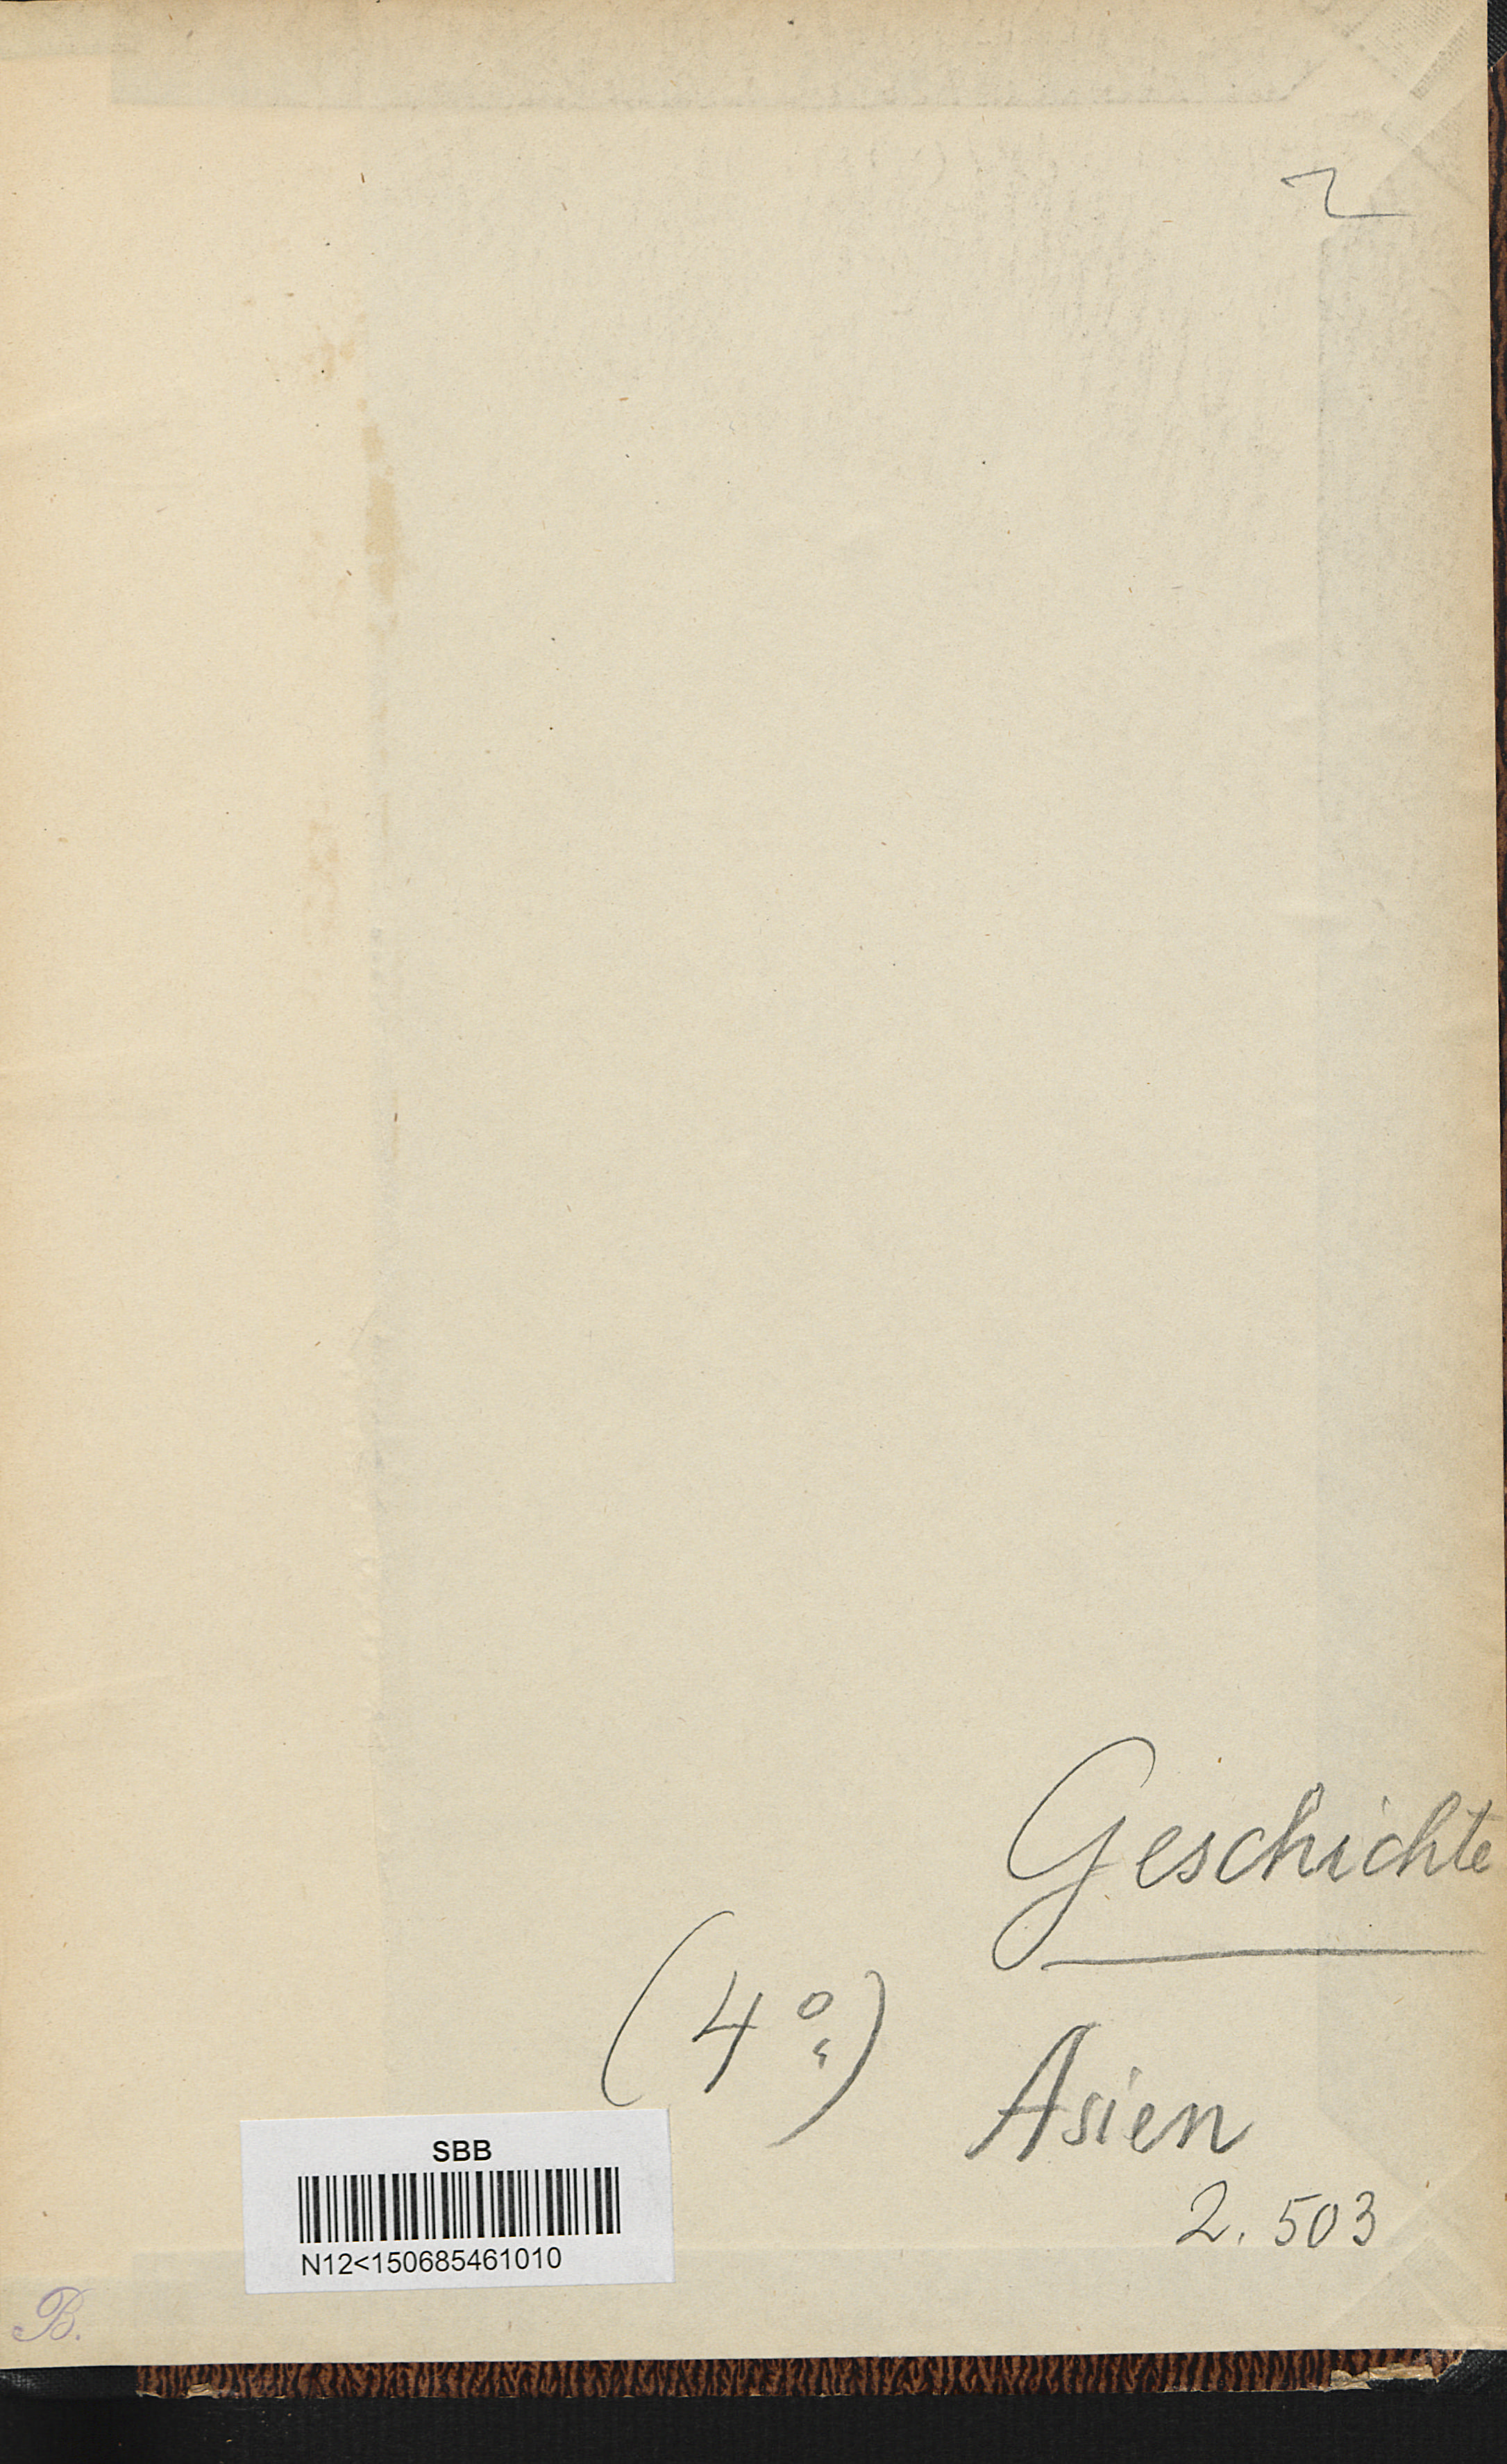 2
Geschichte
(4°)
Asien
2.503
SBB
N12<150685461010
B.